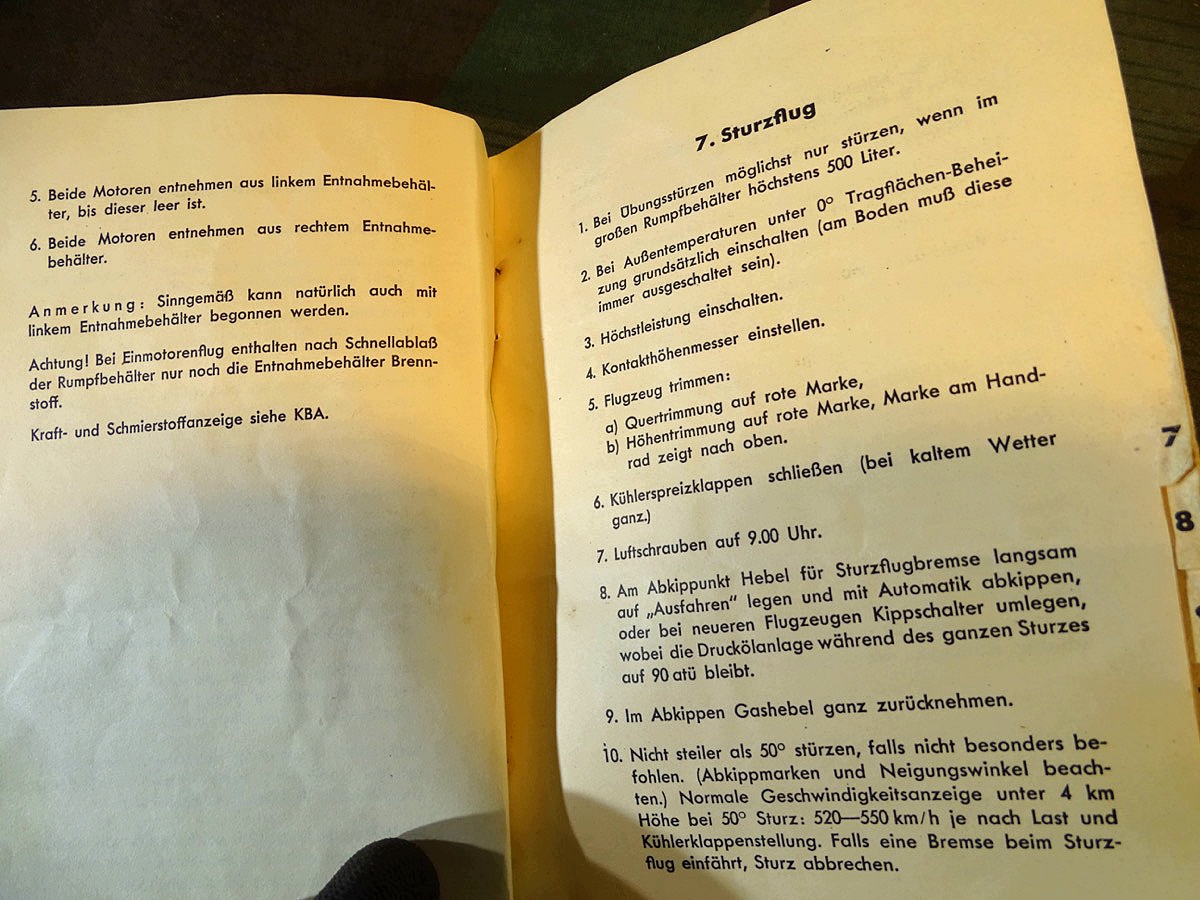 5. Beide Motoren entnehmen aus linkem Entnahmebehäl-
ter, bis dieser leer ist.
6. Beide Motoren entnehmen aus rechtem Entnahme-
behälter.
Anmerkung: Sinngemäß kann natürlich auch mit
linkem Entnahmebehälter begonnen werden.
Achtung! Bei Einmotorenflug enthalten nach Schnellablaß
der Rumpfbehälter nur noch die Entnahmebehälter Brenn-
stoff.
Kraft- und Schmierstoffanzeige siehe KBA.
7. Sturzflug
1. Bei Übungsstürzen möglichst nur stürzen, wenn im
großen Rumpfbehälter höchstens 500 Liter.
2. Bei Außentemperaturen unter 0° Tragflächen-Behei-
zung grundsätzlich einschalten (am Boden muß diese
immer ausgeschaltet sein).
3. Höchstleistung einschalten.
4. Kontakthöhenmesser einstellen.
5. Flugzeug trimmen:
a) Quertrimmung auf rote Marke,
b) Höhentrimmung auf rote Marke, Marke am Hand-
rad zeigt nach oben.
6. Kühlerspreizklappen schließen (bei kaltem Wetter
ganz.)
7. Luftschrauben auf 9.00 Uhr.
8. Am Abkippunkt Hebel für Sturzflugbremse langsam
auf „Ausfahren" legen und mit Automatik abkippen,
oder bei neueren Flugzeugen Kippschalter umlegen,
wobei die Druckölanlage während des ganzen Sturzes
auf 90 atü bleibt.
9. Im Abkippen Gashebel ganz zurücknehmen.
10. Nicht steiler als 50° stürzen, falls nicht besonders be-
fohlen. (Abkippmarken und Neigungswinkel beach-
ten.) Normale Geschwindigkeitsanzeige unter 4 km
Höhe bei 50° Sturz: 520—550 km/h je nach Last und
Kühlerklappenstellung. Falls eine Bremse beim Sturz-
flug einfährt, Sturz abbrechen.
7
8